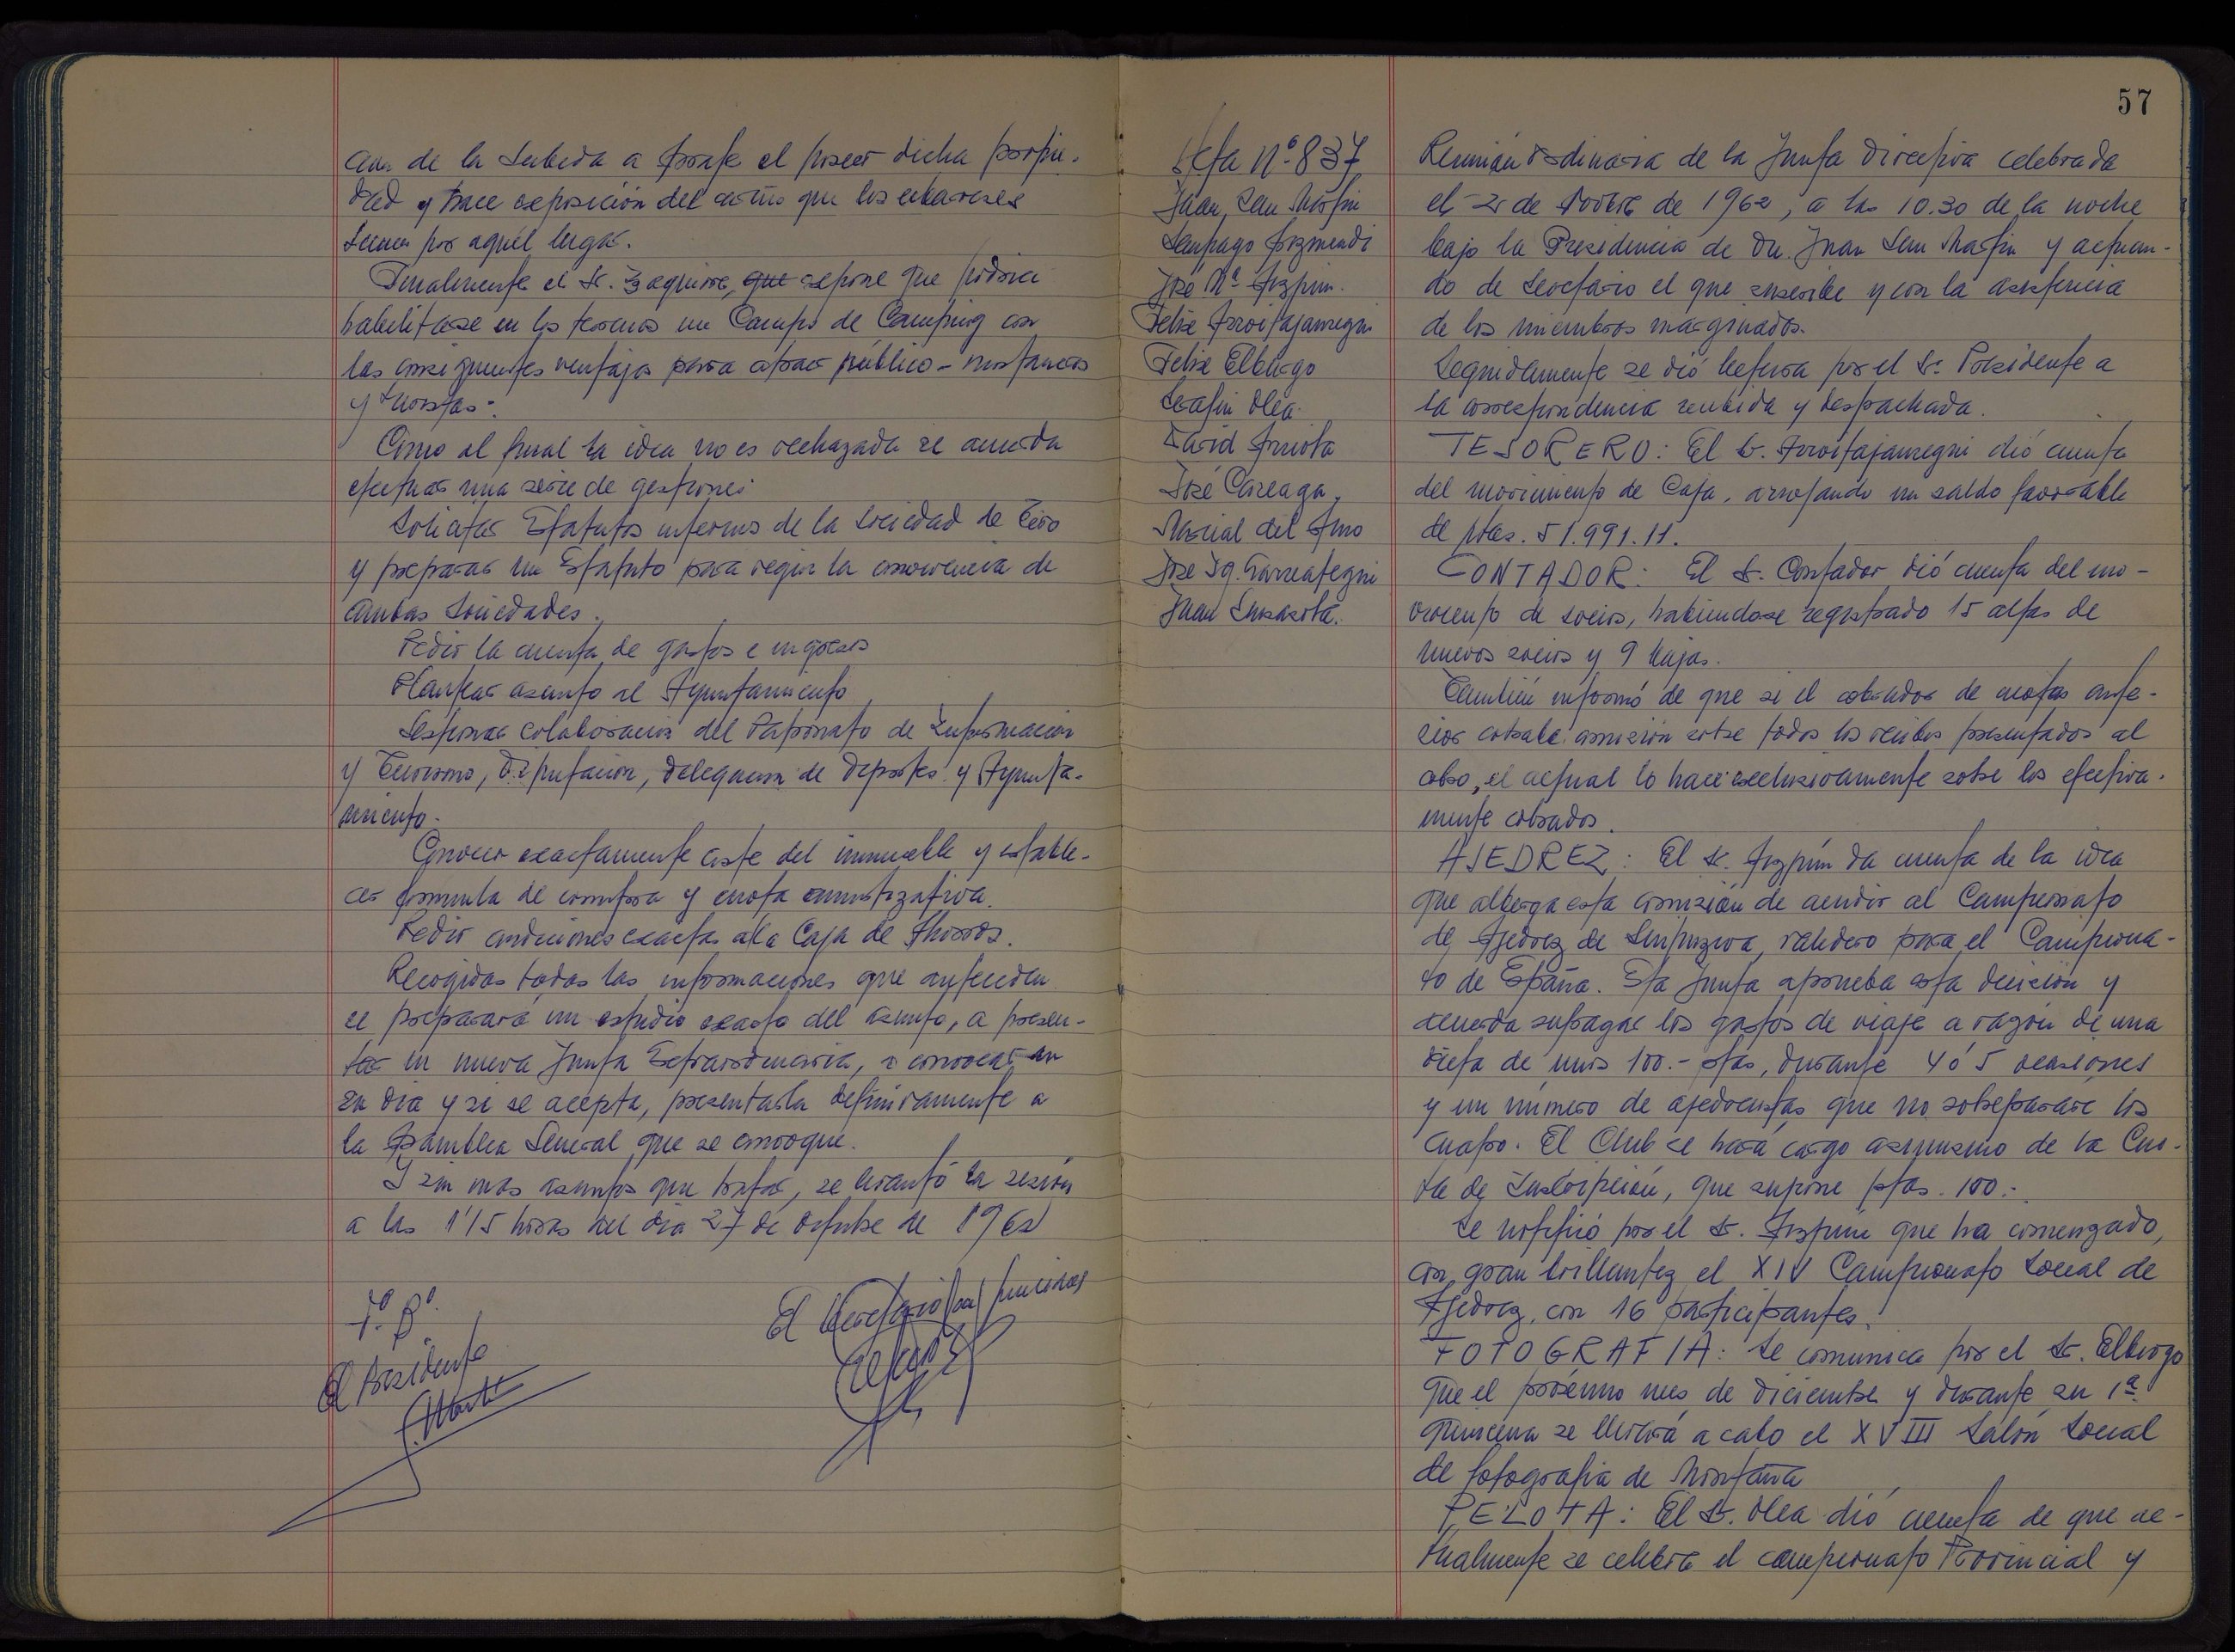 de la Subida a Arrate el poseer dicha propie-
dad y hace exposición del cariño que los eibarreses
tienen por aquél lugar.
Finalmente el Sr. Izaguirre, que expone que podria
habilitarse en los terrenos un Campo de Camping con
las consiguientes ventajas para atraer público - nosotros
y
Como al final la idea no es rechazada se acuerda
efectuar una serie de gestiones:
Solicitar Estatutos internos de la Sociedad de Tiro
y preparar un Estatuto para regir la convivencia de
ambas Sociedades.
Pedir la cuenta de gastos e ingresos
Plantear asunto al Ayuntamiento
Gestionar colaboración del Patronato de Información
y Turismo, Diputación, Delegación de Deportes y Ayunta-
miento.
Conocer exactamente coste del inmueble y estable-
cer formula de compra y cuota amortizativa.
Pedir condiciones exactas a la Caja de Ahorros.
Recogidas todas las informaciones que anteceden
se preparará un estudio exacto del asunto, a presen-
tar en nueva Junta Extraordinaria, a convocar en
su dia y si se acepta, presentarla definivamente a
la Asamblea General que se convoque.
Y sin más asuntos que tratar, se levantó la sesión
a las 1'15 horas del dia 27 de Octubre de 1962
Vº Bº
El Presidente
El Secretario en funciones
57
Acta Nº 837
Juan San Martin
Santiago Arizmendi
José Mª Aizpun.
Felix Arroitajauregui
Felix Elburgo
Serafin Olea
David Arriola
José Careaga
Marcial del Amo
José Ig. Garreategui
Juan
Reunión Ordinaria de la Junta Directiva celebrada
el 2 de Novbre de 1962, a las 10.30 de la noche
bajo la Presidencia de Dn. Juan San Martin y actuan-
do de Secretario el que suscribe y con la asistencia
de los miembros marginados.
Seguidamente se dió lectura por el Sr. Presidente a
la correspondencia recibida y despachada.
TESORERO: El Sr. Arroitajauregui dió cuenta
del movimiento de Caja, arrojando un saldo favorable
de ptas. 51.991.11.
CONTADOR: El Sr. Contador dió cuenta del mo-
vimiento de socios, habiendose registrado 15 altas de
nuevos socios y 9 bajas.
También informó de que si el cobrador de cuotas ante-
rior cobraba comisión sobre todos los recibos presentados al
cobro, el actual lo hace exclusivamente sobre los efectiva-
mente cobrados.
AJEDREZ: El Sr. Aizpún da cuenta de la idea
que alberga esta comisión de acudir al Campeonato
de Ajedrez de Guipuzcoa, valedero para el Campeona-
to de España. Esta Junta aprueba esta decisión y
acuerda sufragar los gastos de viaje a razón de una
dieta de unas 100.- ptas, durante 4 ó 5 ocasiones
y un número de ajedrecistas que no sobrepasare los
cuatro. El Club se hará cargo asimismo de la Cuo-
ta de Inscripción, que supone ptas. 100.-
Se notificó por el Sr. Aizpun que ha comenzado,
con gran brillantez el XIV Campeonato Social de
Ajedrez, con 16 participantes.
FOTOGRAFIA: Se comunica por el Sr. Elburgo
que el próximo mes de diciembre y durante su 1ª
quincena se llevará a cabo el XVIII Salón Social
de fotografia de Montaña
PELOTA: El Sr. Olea dió cuenta de que ac-
tualmente se celebra el campeonato Provincial y